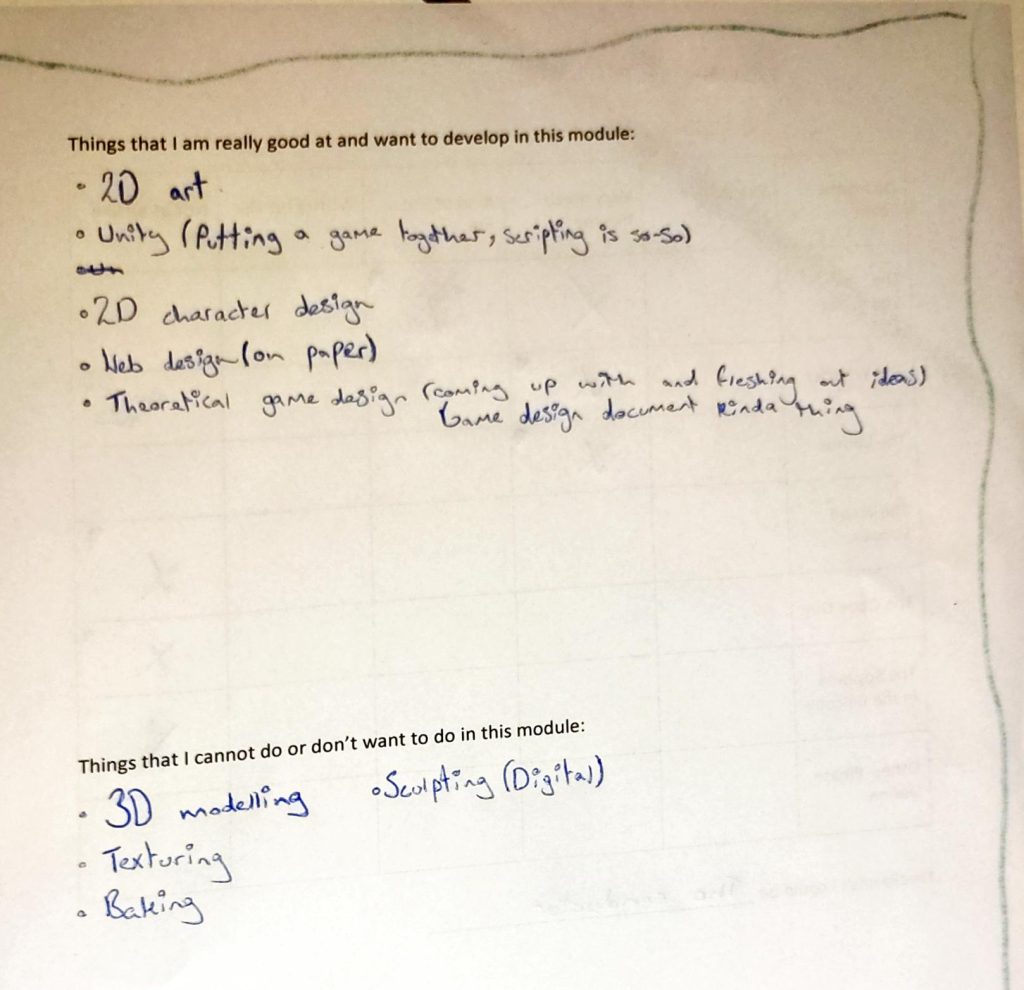 Things that I am really good at and want to develop in this module:
• 2D art
• Unity (Putting a game together, scripting is so-so)
• 2D character design
• Web design (on paper)
• Theoretical game design (coming up with and fleshing out ideas)
Game design document kinda thing
Things that I cannot do or don't want to do in this module:
• 3D modelling • Sculpting (Digital)
• Texturing
• Baking